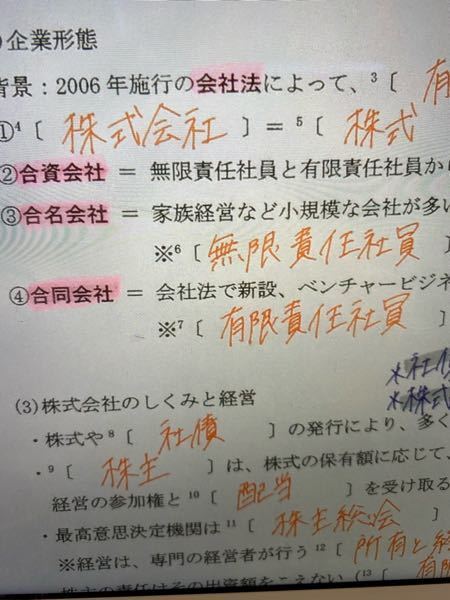 )企業形態
背景：2006年施行の会社法によって、³〔 有
①⁴〔 株式会社 〕＝⁵〔 株式
②合資会社 ＝ 無限責任社員と有限責任社員から
③合名会社 ＝ 家族経営など小規模な会社が多い
※⁶〔無限責任社員 〕
④合同会社 ＝ 会社法で新設、ベンチャービジネ
※⁷〔 有限責任社員 〕
※社債
※株式
(3)株式会社のしくみと経営
・株式や⁸〔 社債 〕の発行により、多く
・⁹〔 株主 〕は、株式の保有額に応じて、
経営の参加権と¹⁰〔 配当 〕を受け取る
・最高意思決定機関は¹¹〔 株主総会 〕
※経営は、専門の経営者が行う¹²〔所有と経
株主の責任はその出資額をこえない（¹³〔 有限